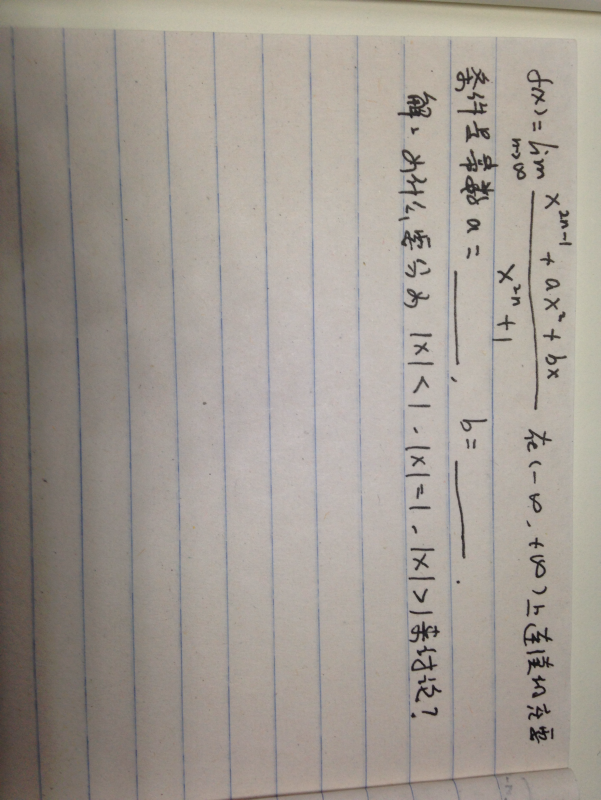 f(x) = lim n→∞ (x^{2n-1} + ax² + bx) / (x^{2n} + 1) 在(-∞, +∞)上连续的充要
条件是常数 a = ____, b = ____.
解: 为什么要分为 |x|<1、|x|=1、|x|>1来讨论?